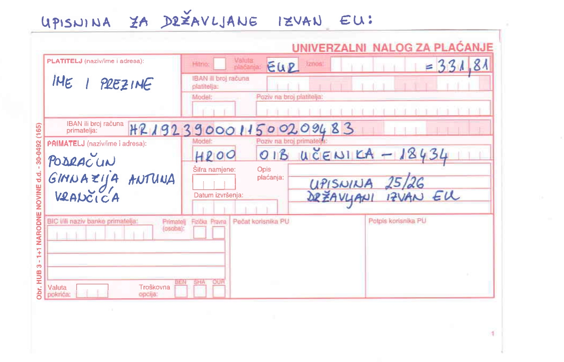 UPISNINA ZA DRŽAVLJANE IZVAN EU:
UNIVERZALNI NALOG ZA PLAĆANJE
PLATITELJ (naziv/ime i adresa):
IME I PREZIME
Hitno:
Valuta plaćanja:
EUR
Iznos:
=331,81
IBAN ili broj računa platitelja:
Model:
Poziv na broj platitelja:
IBAN ili broj računa primatelja:
HR1923900011500209483
PRIMATELJ (naziv/ime i adresa):
PODRAČUN
GIMNAZIJA ANTUNA
VRANČIĆA
Model:
HR00
Poziv na broj primatelja:
OIB UČENIKA - 18434
Šifra namjene:
Opis plaćanja:
UPISNINA 25/26
DRŽAVLJANI IZVAN EU
Datum izvršenja:
BIC i/ili naziv banke primatelja:
Primatelj (osoba):
Fizička
Pravna
Pečat korisnika PU
Potpis korisnika PU
Valuta pokrića:
Troškovna opcija:
BEN
SHA
OUR
Obr. HUB 3 - 1+1 NARODNE NOVINE d.d. - 30-0492 (165)
1